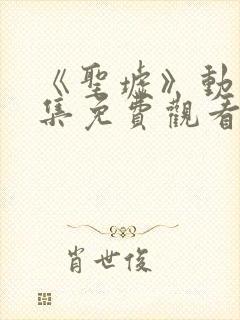 《聖墟》動
集免費觀看
肖世俊